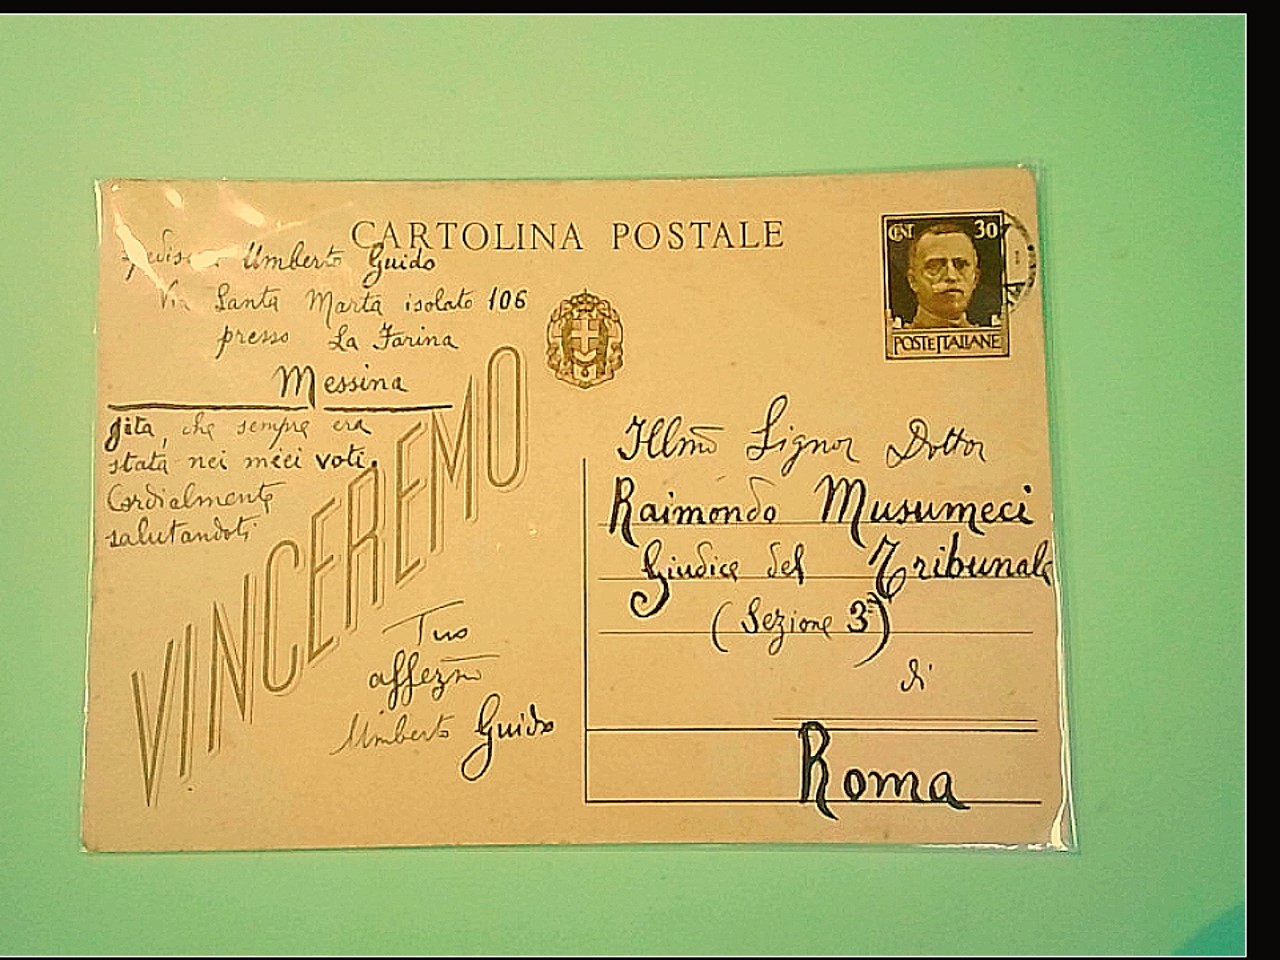 CARTOLINA POSTALE
Umberto Guido
Via Santa Marta isolato 106
presso La Farina
Messina
gita, che sempre era
stata nei miei voti.
Cordialmente
salutandoti
Tuo
affezmo
Umberto Guido
VINCEREMO
CENT 30
POSTE ITALIANE
Illmo Signor Dottor
Raimondo Musumeci
Giudice del Tribunale
(Sezione 3ª)
di
Roma